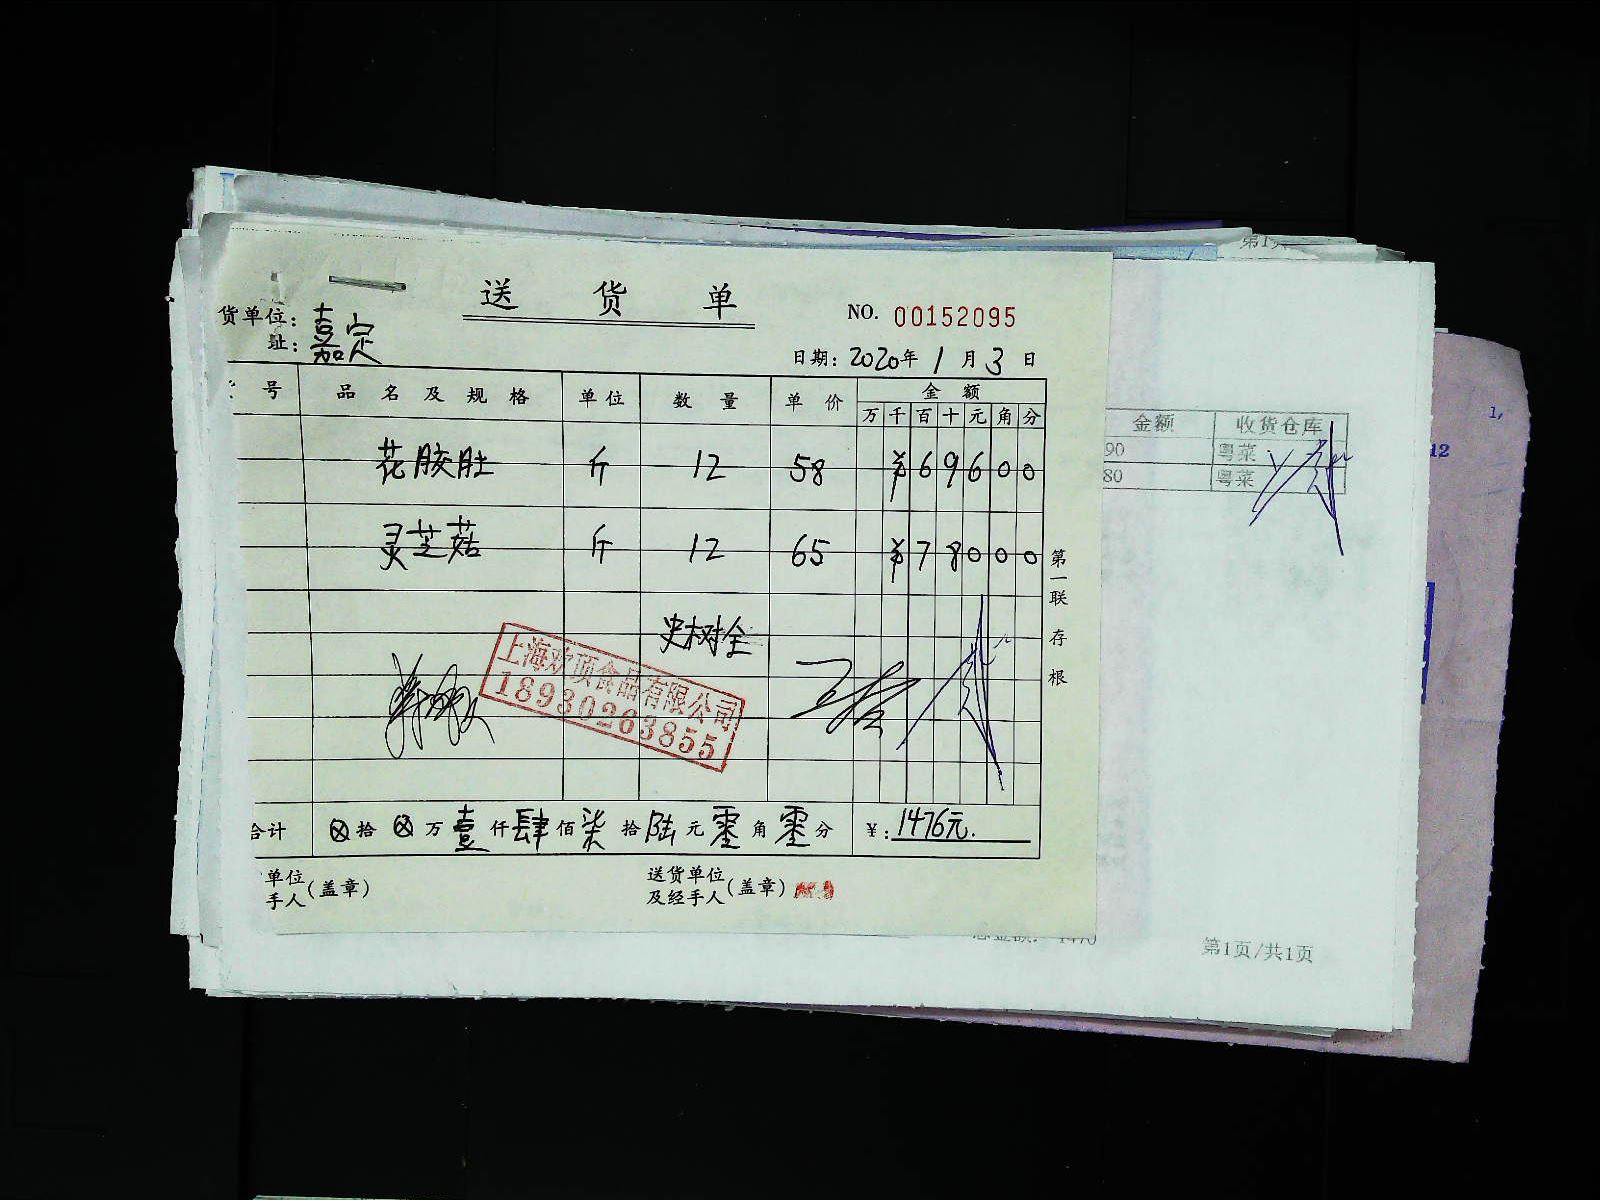 送 货 单
NO. 00152095
货单位: 嘉定
址:
日期: 2020年 1 月 3 日
号 品名及规格 单位 数量 单价 金额
万 千 百 十 元 角 分
花胶肚 斤 12 58 ¥ 6 9 6 0 0
灵芝菇 斤 12 65 ¥ 7 8 0 0 0
史树全
上海欢顶食品有限公司
18930263855
合计 ⊗拾 ⊗万 壹仟 肆佰 柒拾 陆元 零角 零分 ¥: 1476元.
单位
手人(盖章)
送货单位
及经手人(盖章)
第一联 存根
金额 收货仓库
90 粤菜
80 粤菜
第1页/共1页
12